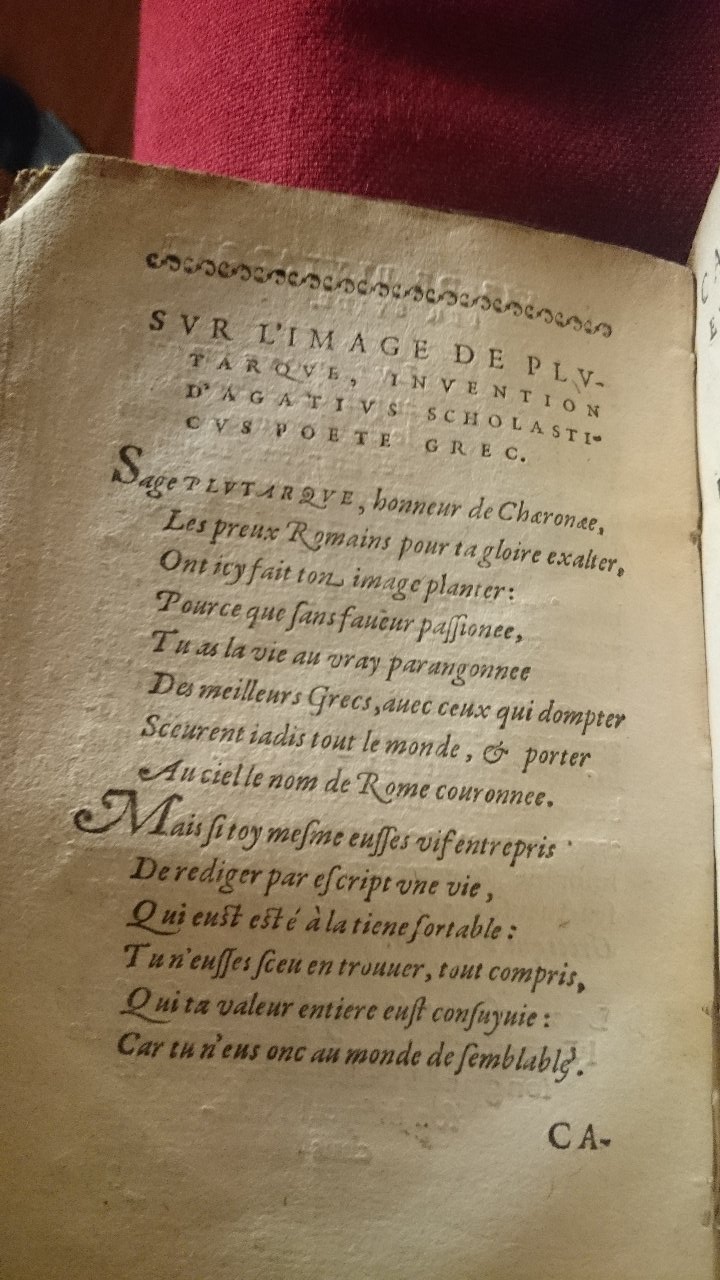 SVR L'IMAGE DE PLV-
TARQVE, INVENTION
D'AGATIVS SCHOLASTI-
CVS POETE GREC.
Sage PLVTARQVE, honneur de Chæronæ,
Les preux Romains pour ta gloire exalter,
Ont icy fait ton image planter:
Pource que ſans faueur paſſionee,
Tu as la vie au vray parangonnee
Des meilleurs Grecs, auec ceux qui dompter
Sceurent iadis tout le monde, & porter
Au ciel le nom de Rome couronnee.
Mais ſi toy meſme euſſes vif entrepris
De rediger par eſcript vne vie,
Qui euſt eſté à la tiene ſortable:
Tu n'euſſes ſceu en trouuer, tout compris,
Qui ta valeur entiere euſt conſuyuie:
Car tu n'eus onc au monde de ſemblable.
CA-